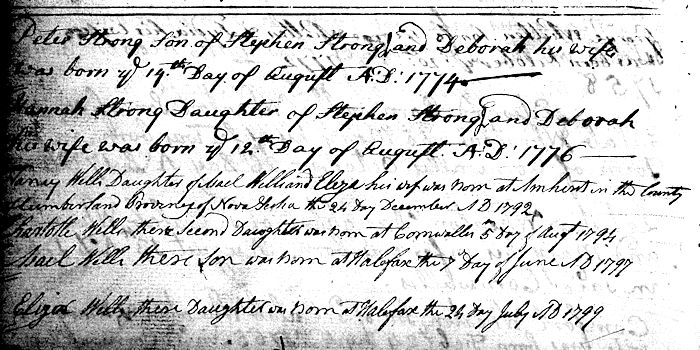 Peter Strong Son of Stephen Strong and Deborah his wife
was born ye 19th Day of August A.D: 1774
Hannah Strong Daughter of Stephen Strong and Deborah
his wife was born ye 12th Day of August A.D: 1776
Daughter of Mael Wells and Eliza his wif was born at Amherst in the County
Cumberland Provines of Nova Skotia the 24 Day December AD 1792
Charlotte Wells there Second Daughter was born at Cornwalles 5 Day of Augt 1794
Mael Wells there Son was born at Halefax the 7 Day of June AD 1797
Eliza Wells there Daughter was born at Halefax the 24 Day July AD 1799